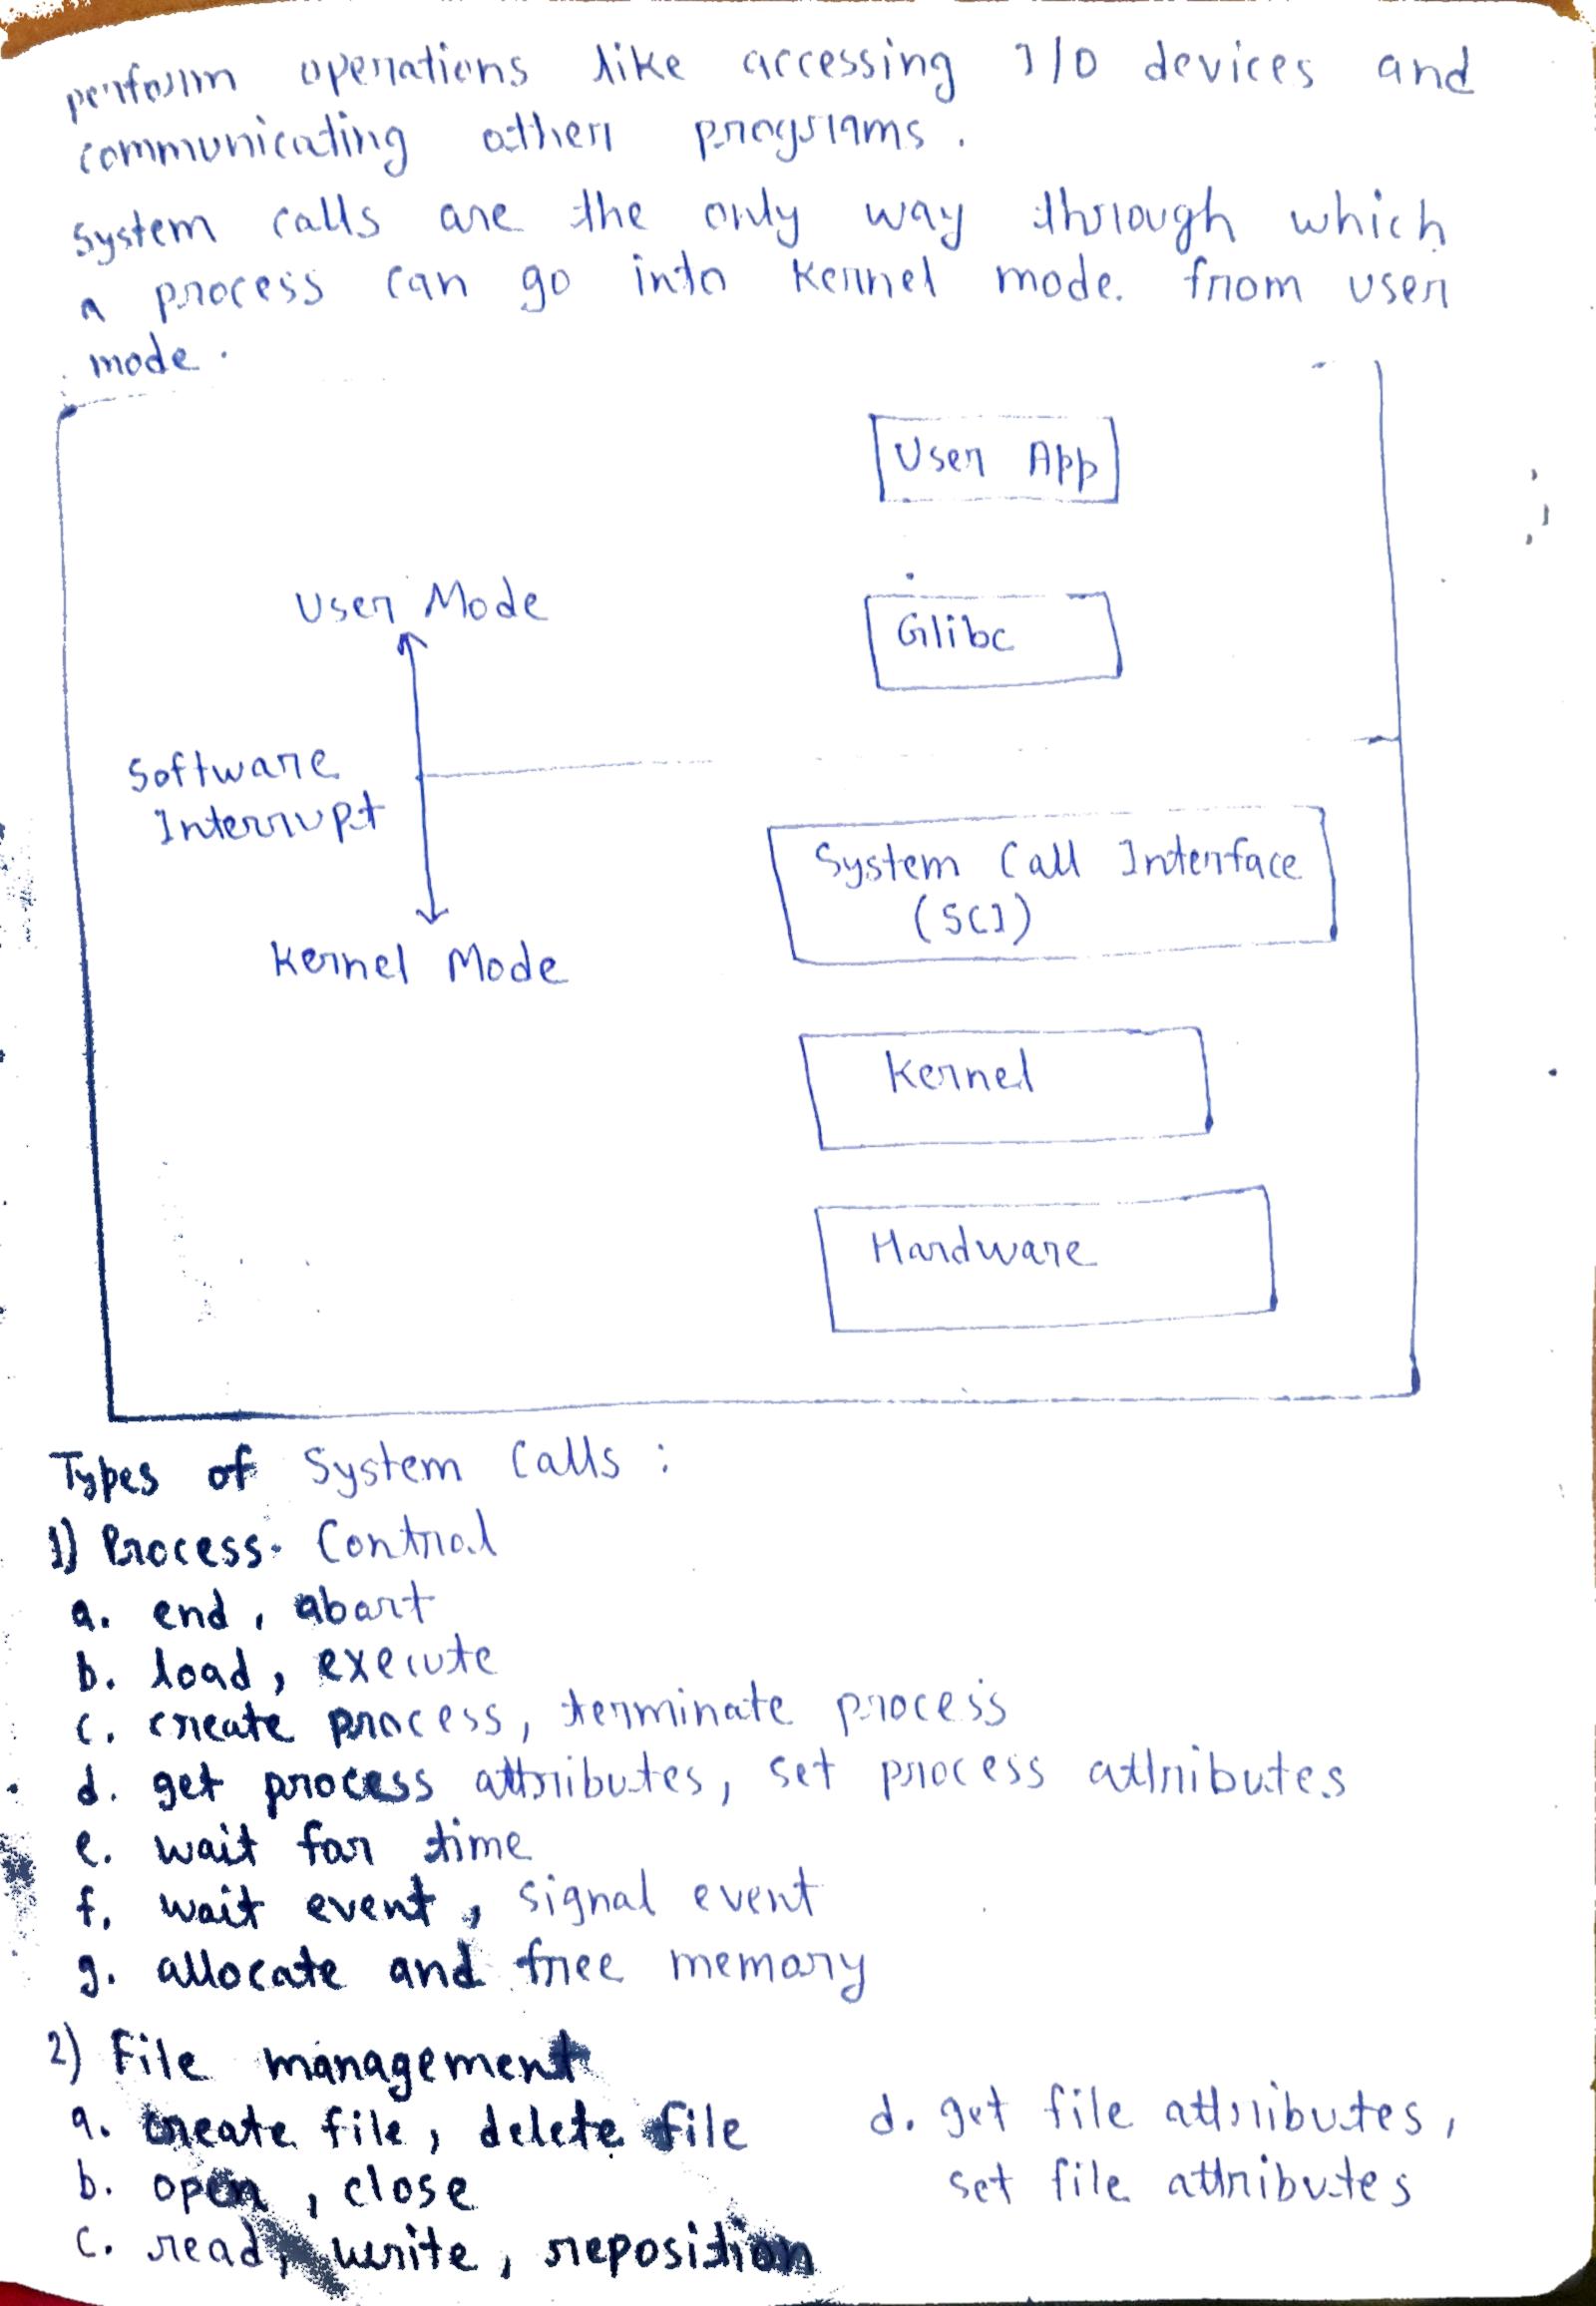 perform operations like accessing I/O devices and
communicating other programs.
System calls are the only way through which
a process can go into kernel mode. from user
mode.
User App
User Mode
Glibc
Software
Interrupt
System Call Interface
(SCI)
Kernel Mode
Kernel
Hardware
Types of System Calls :
1) Process Control
a. end, abort
b. load, execute
c. create process, terminate process
d. get process attributes, set process attributes
e. wait for time
f. wait event, signal event
g. allocate and free memory
2) File management
a. create file, delete file
b. open, close
c. read, write, reposition
d. get file attributes,
set file attributes